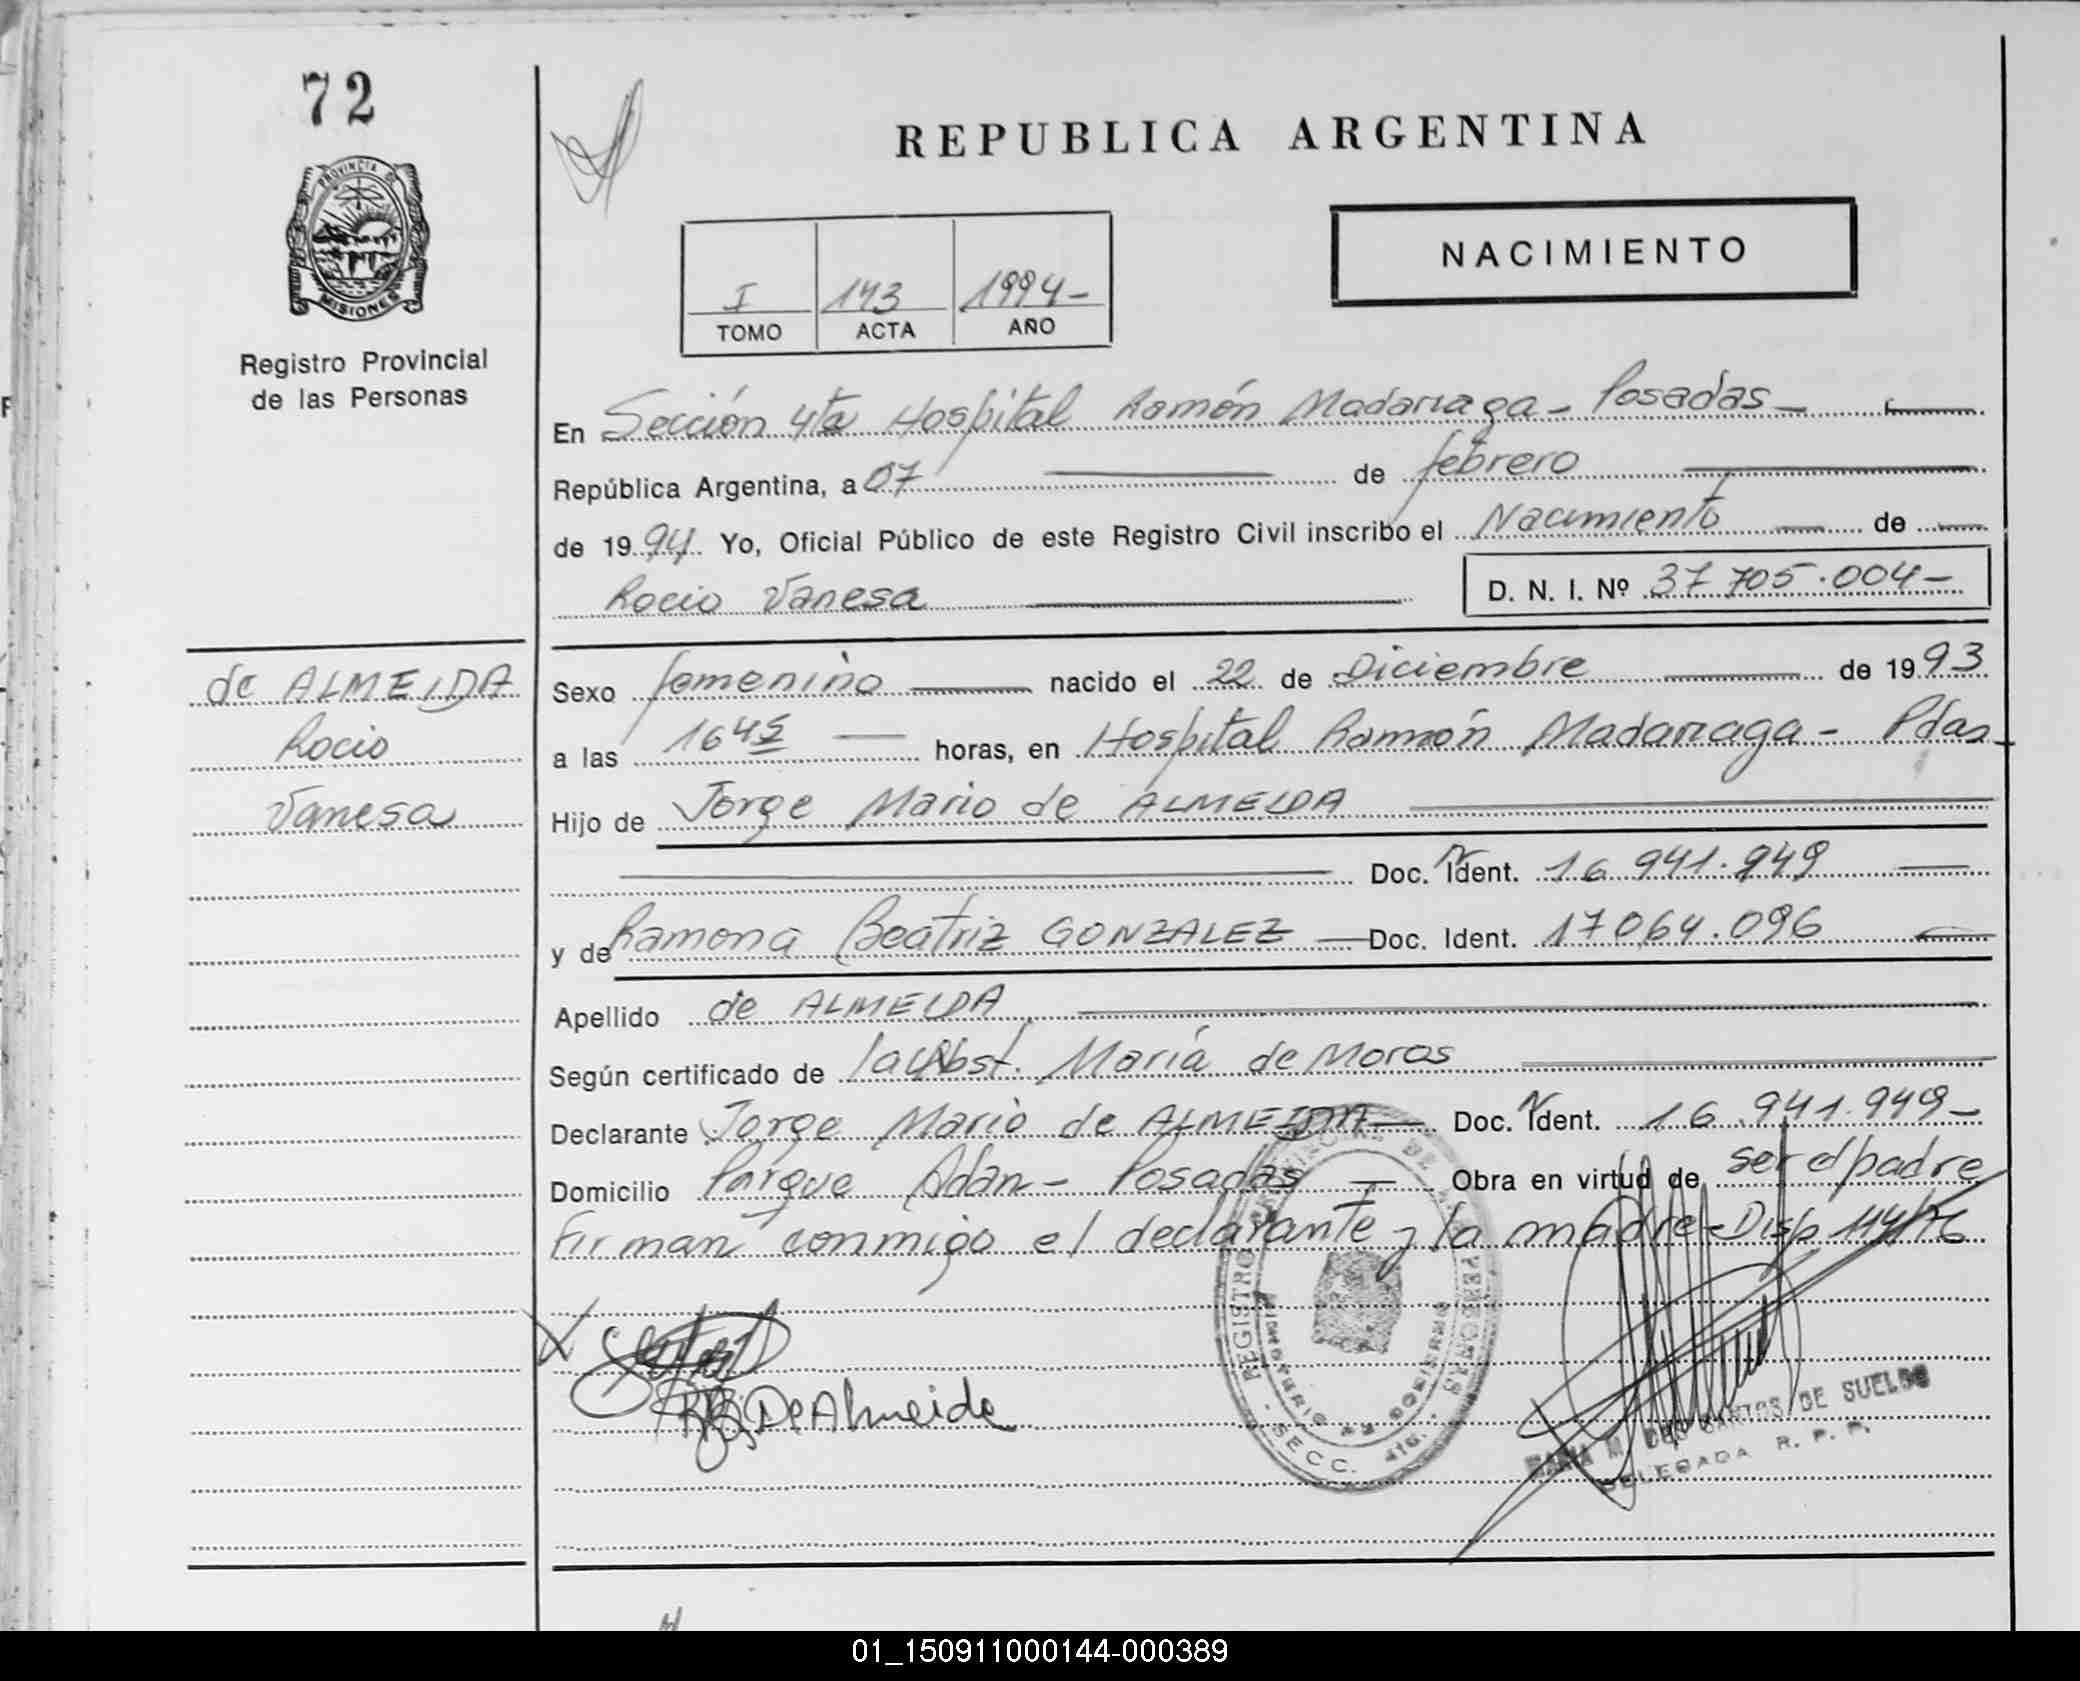 72
PROVINCIA DE
MISIONES
Registro Provincial
de las Personas
REPUBLICA ARGENTINA
NACIMIENTO
I 143 1994-
TOMO ACTA AÑO
En Sección 4ta Hospital Ramón Madariaga - Posadas -
República Argentina, a 07 de febrero
de 1994 Yo, Oficial Público de este Registro Civil inscribo el Nacimiento de
Rocio Vanesa D. N. I. Nº 37 705.004-
de ALMEIDA
Rocio
Vanesa
Sexo femenino nacido el 22 de Diciembre de 1993
a las 1645 horas, en Hospital Ramón Madariaga - Pdas
Hijo de Jorge Mario de ALMEIDA
Doc. Ident. 16 941.949
y de Ramona Beatriz GONZALEZ Doc. Ident. 17064.096
Apellido de ALMEIDA
Según certificado de la Obst. María de Moros
Declarante Jorge Mario de ALMEIDA Doc. Ident. 16.941.949-
Domicilio Parque Adan - Posadas Obra en virtud de ser el padre
Firman conmigo el declarante y la madre - Disp 114/76
De Almeida
REGISTRO PROVINCIAL DE LAS PERSONAS
MINISTERIO DE GOBIERNO
SECC. 4ta.
MARIA M. DOS SANTOS DE SUELDO
DELEGADA R. P. P.
01_150911000144-000389